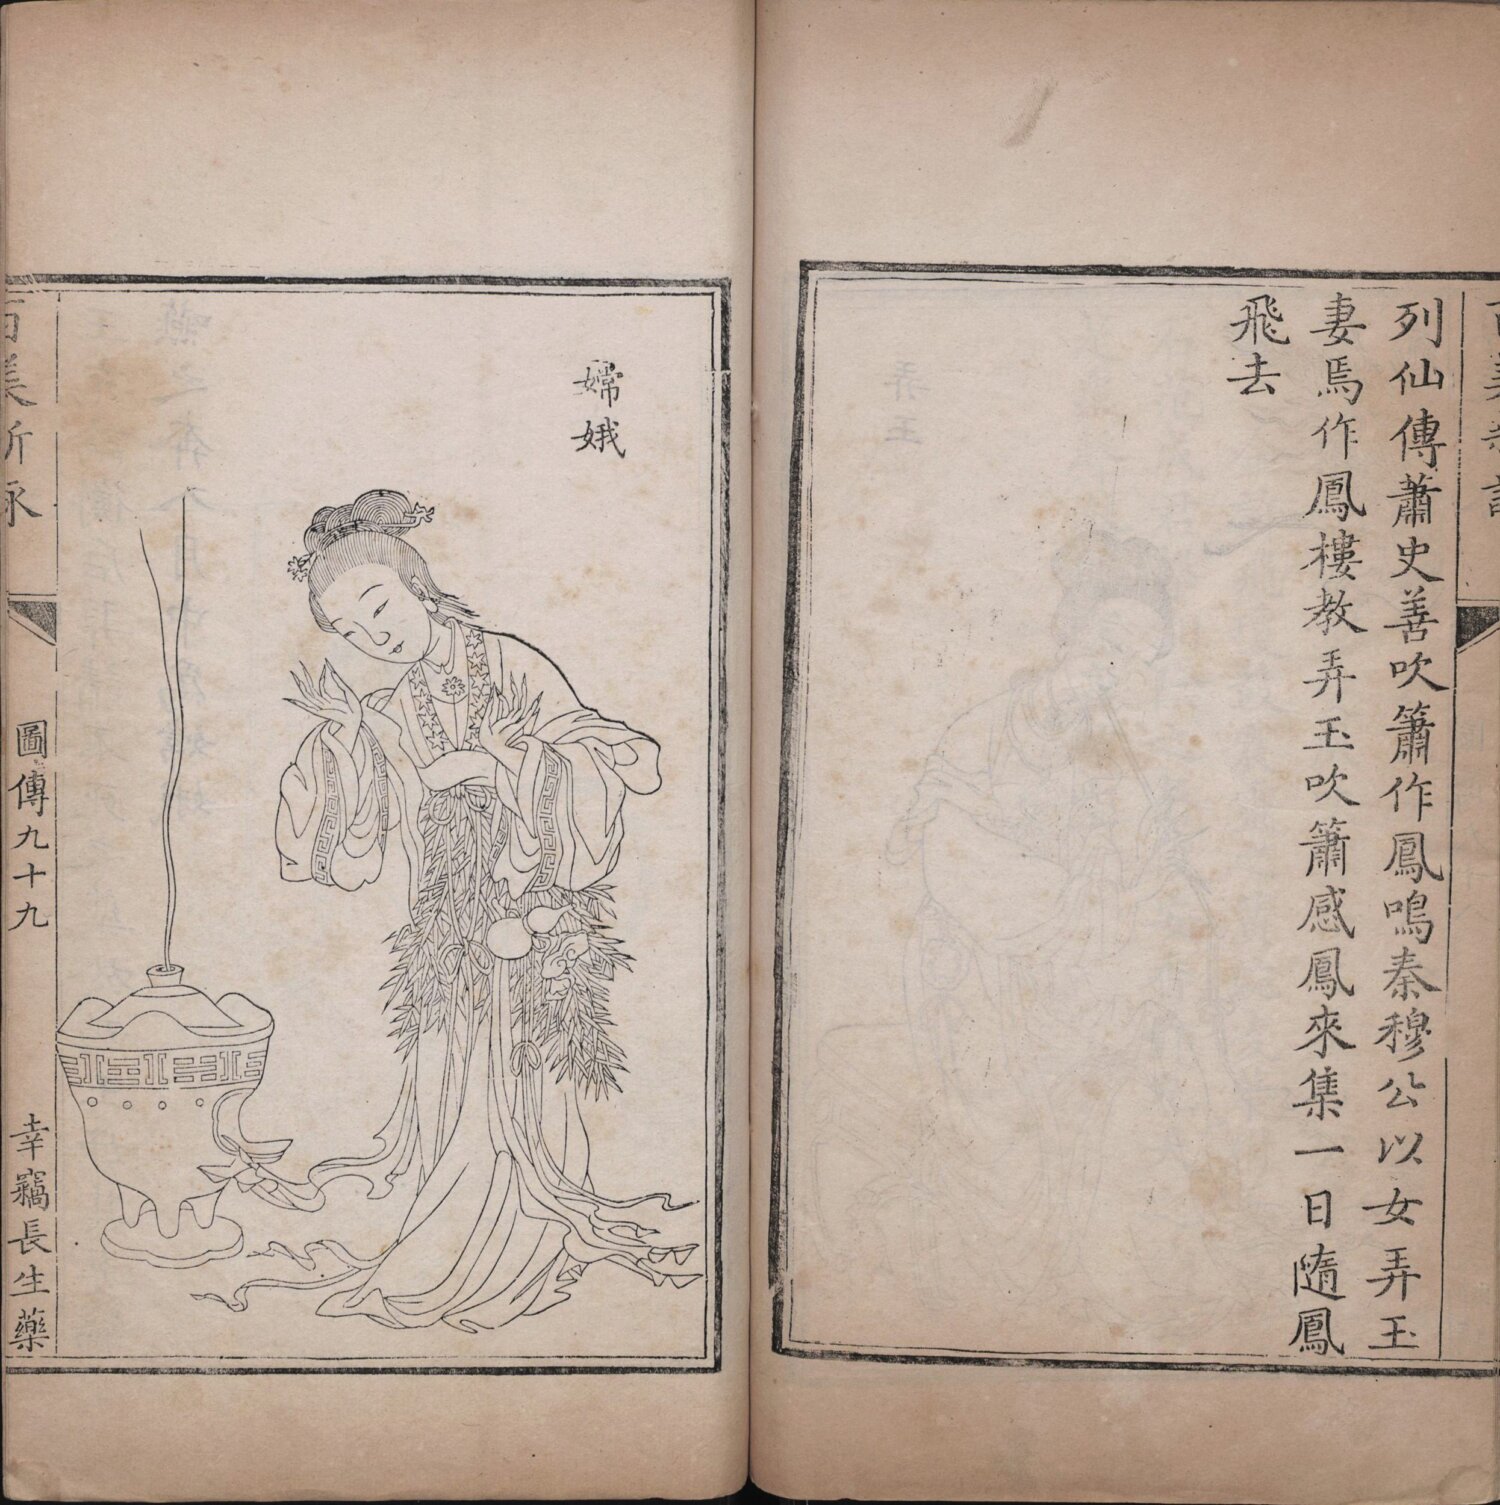 列仙傳蕭史善吹簫作鳳鳴秦穆公以女弄玉
妻焉作鳳樓教弄玉吹簫感鳳來集一日隨鳳
飛去
嫦娥
百美新詠
圖傳九十九
幸竊長生藥